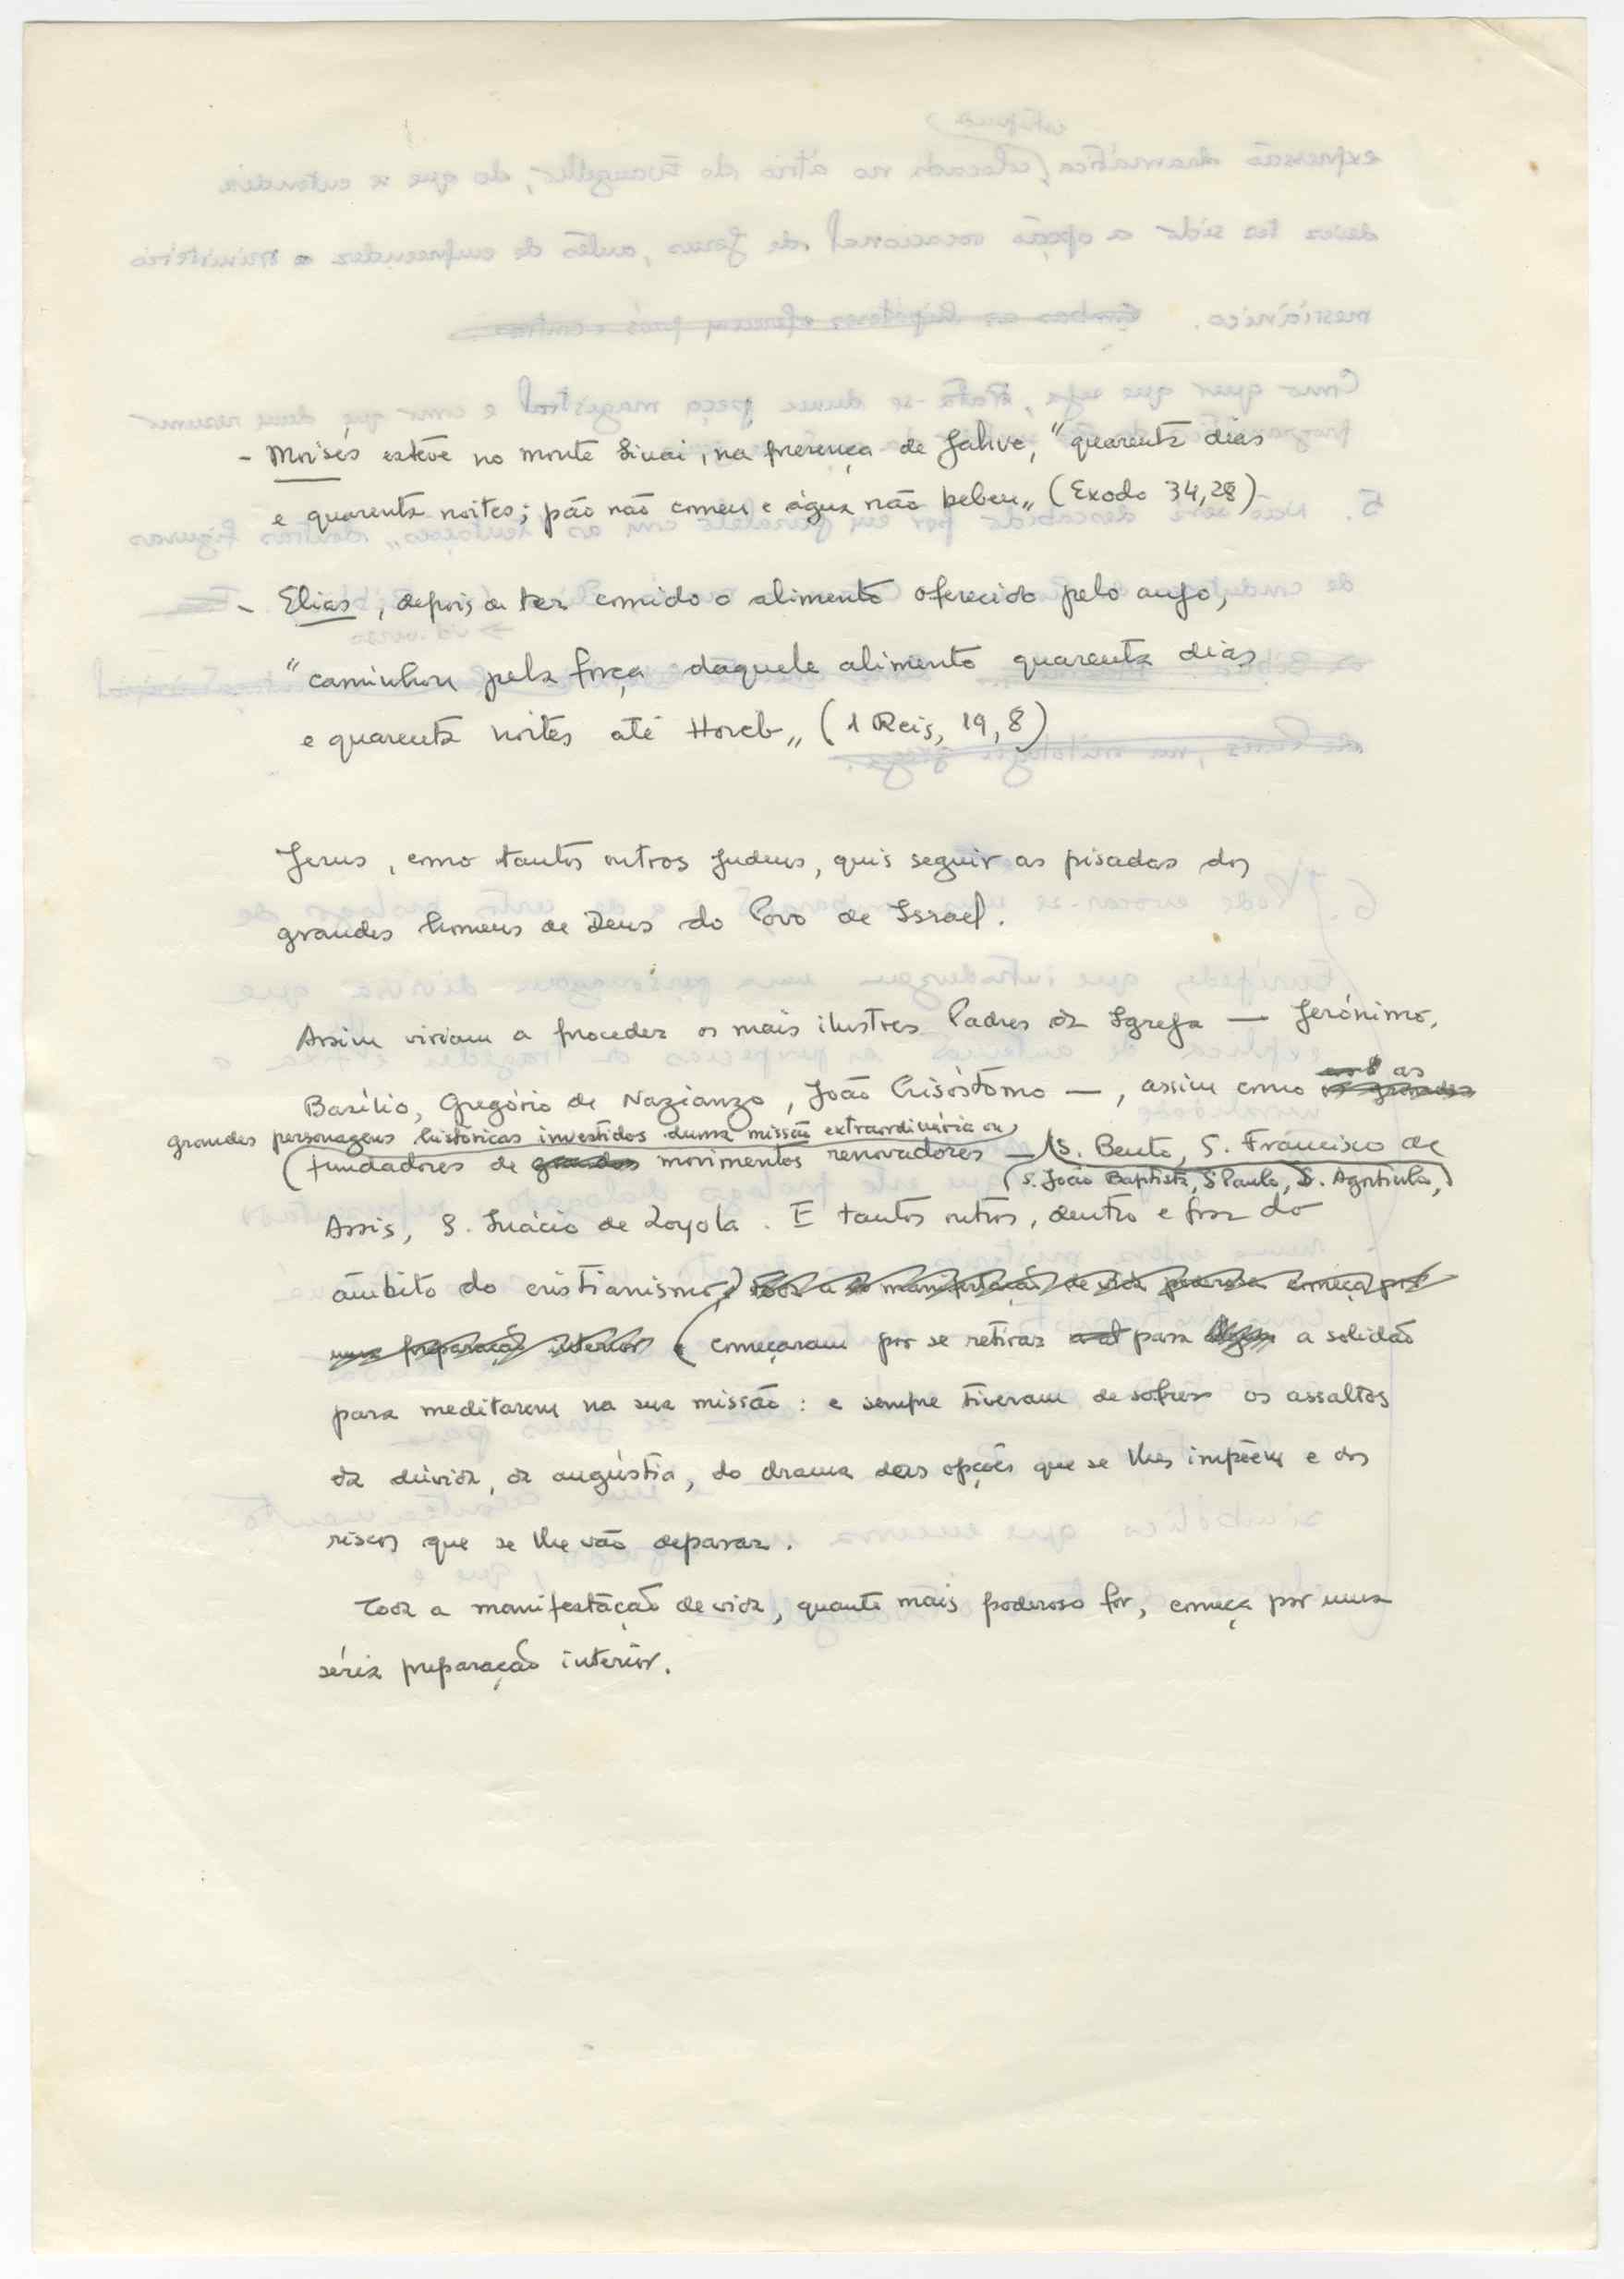 - Moisés esteve no monte Sinai, na presença de Jahve, "quarenta dias
e quarenta noites; pão não comeu e água não bebeu„ (Exodo 34,28)
- Elias, depois de ter comido o alimento oferecido pelo anjo,
"caminhou pela força daquele alimento quarenta dias
e quarenta noites até Horeb„ (1 Reis, 19,8)
Jesus, como tantos outros judeus, quis seguir as pisadas dos
grandes homens de Deus do Povo de Israel.
Assim viriam a proceder os mais ilustres Padres da Igreja — Jerónimo,
Basílio, Gregório de Nazianzo, João Crisóstomo —, assim como os grandes as
grandes personagens históricas investidos duma missão extraordinária ou
fundadores de grandes movimentos renovadores — S. Bento, S. Francisco de
(S. João Baptista, S Paulo, S. Agostinho,)
Assis, S. Inácio de Loyola. E tantos outros, dentro e fora do
âmbito do cristianismo, toda a manifestação de vida poderosa começa por
uma preparação interior começaram por se retirar para a solidão
para meditarem na sua missão: e sempre tiveram de sofrer os assaltos
da dúvida, da angústia, do drama das opções que se lhes impõem e dos
riscos que se lhe vão deparar.
Toda a manifestação de vida, quanto mais poderosa for, começa por uma
séria preparação interior.